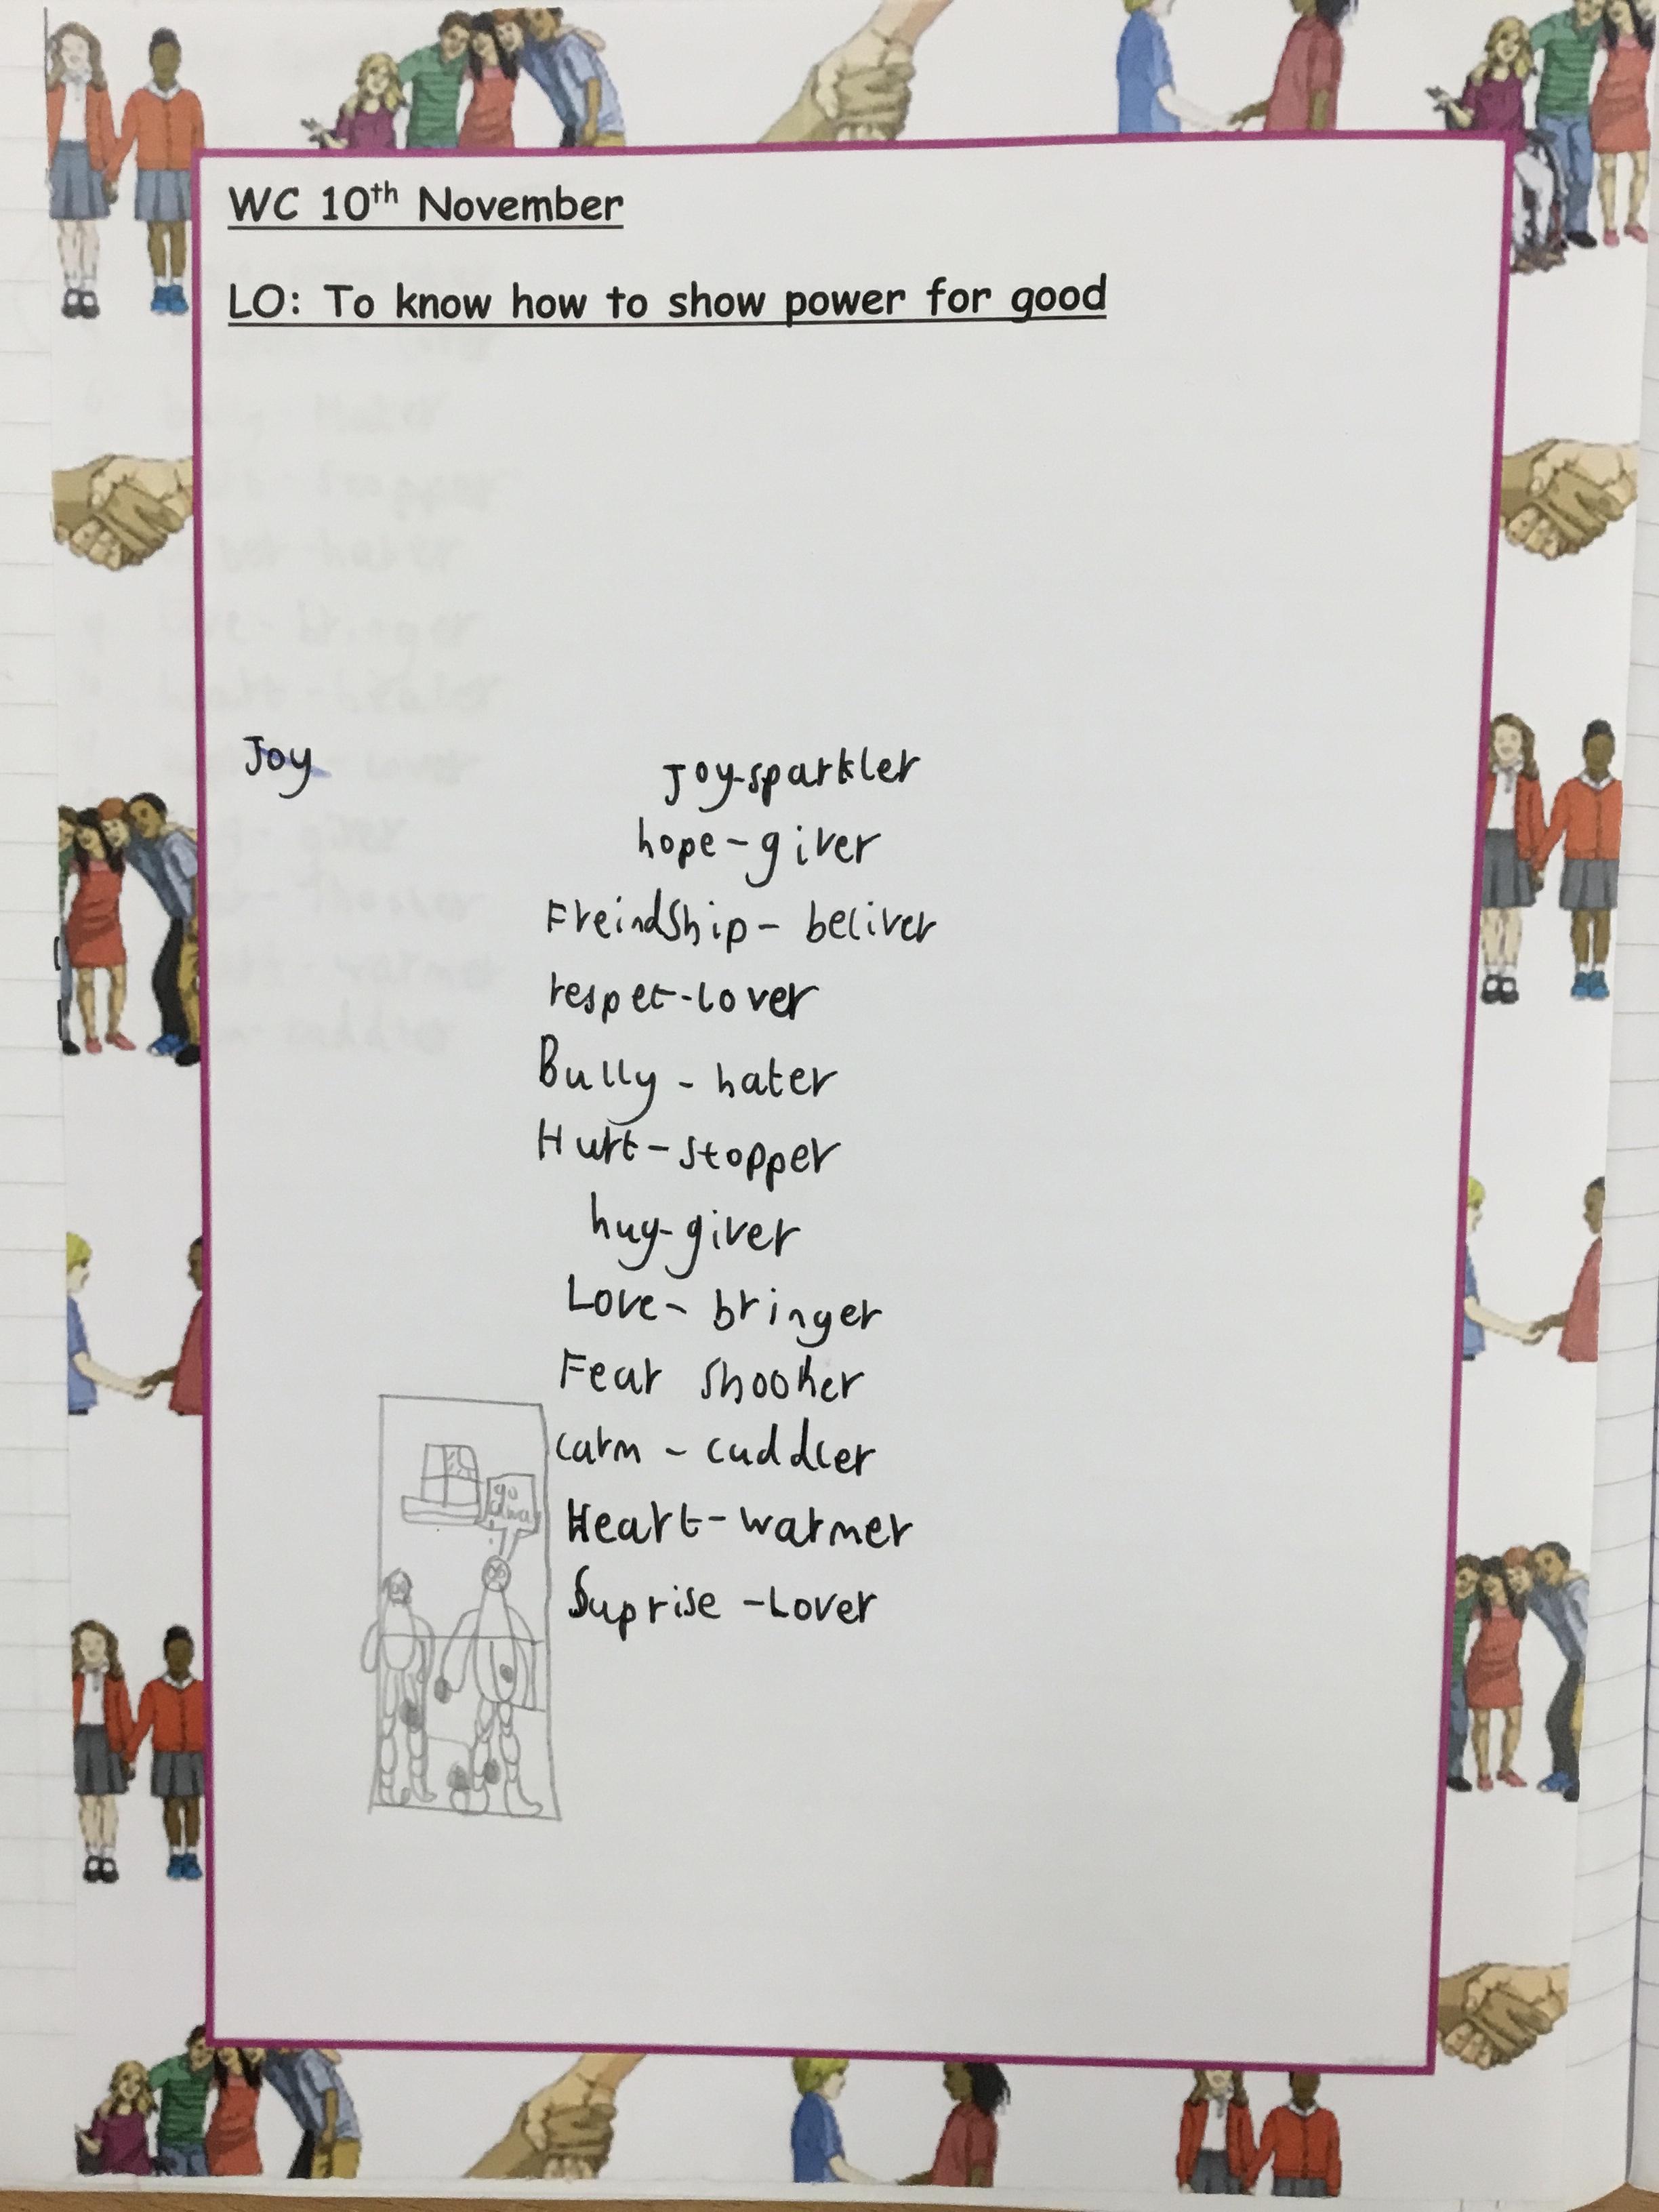 WC 10th November
LO: To know how to show power for good
Joy
Joy-sparkler
hope-giver
FreindShip- beliver
respet-lover
Bully - hater
Hurt-stopper
hug-giver
Love- bringer
Fear
calm - cuddler
Heart-warmer
Suprise -Lover
go